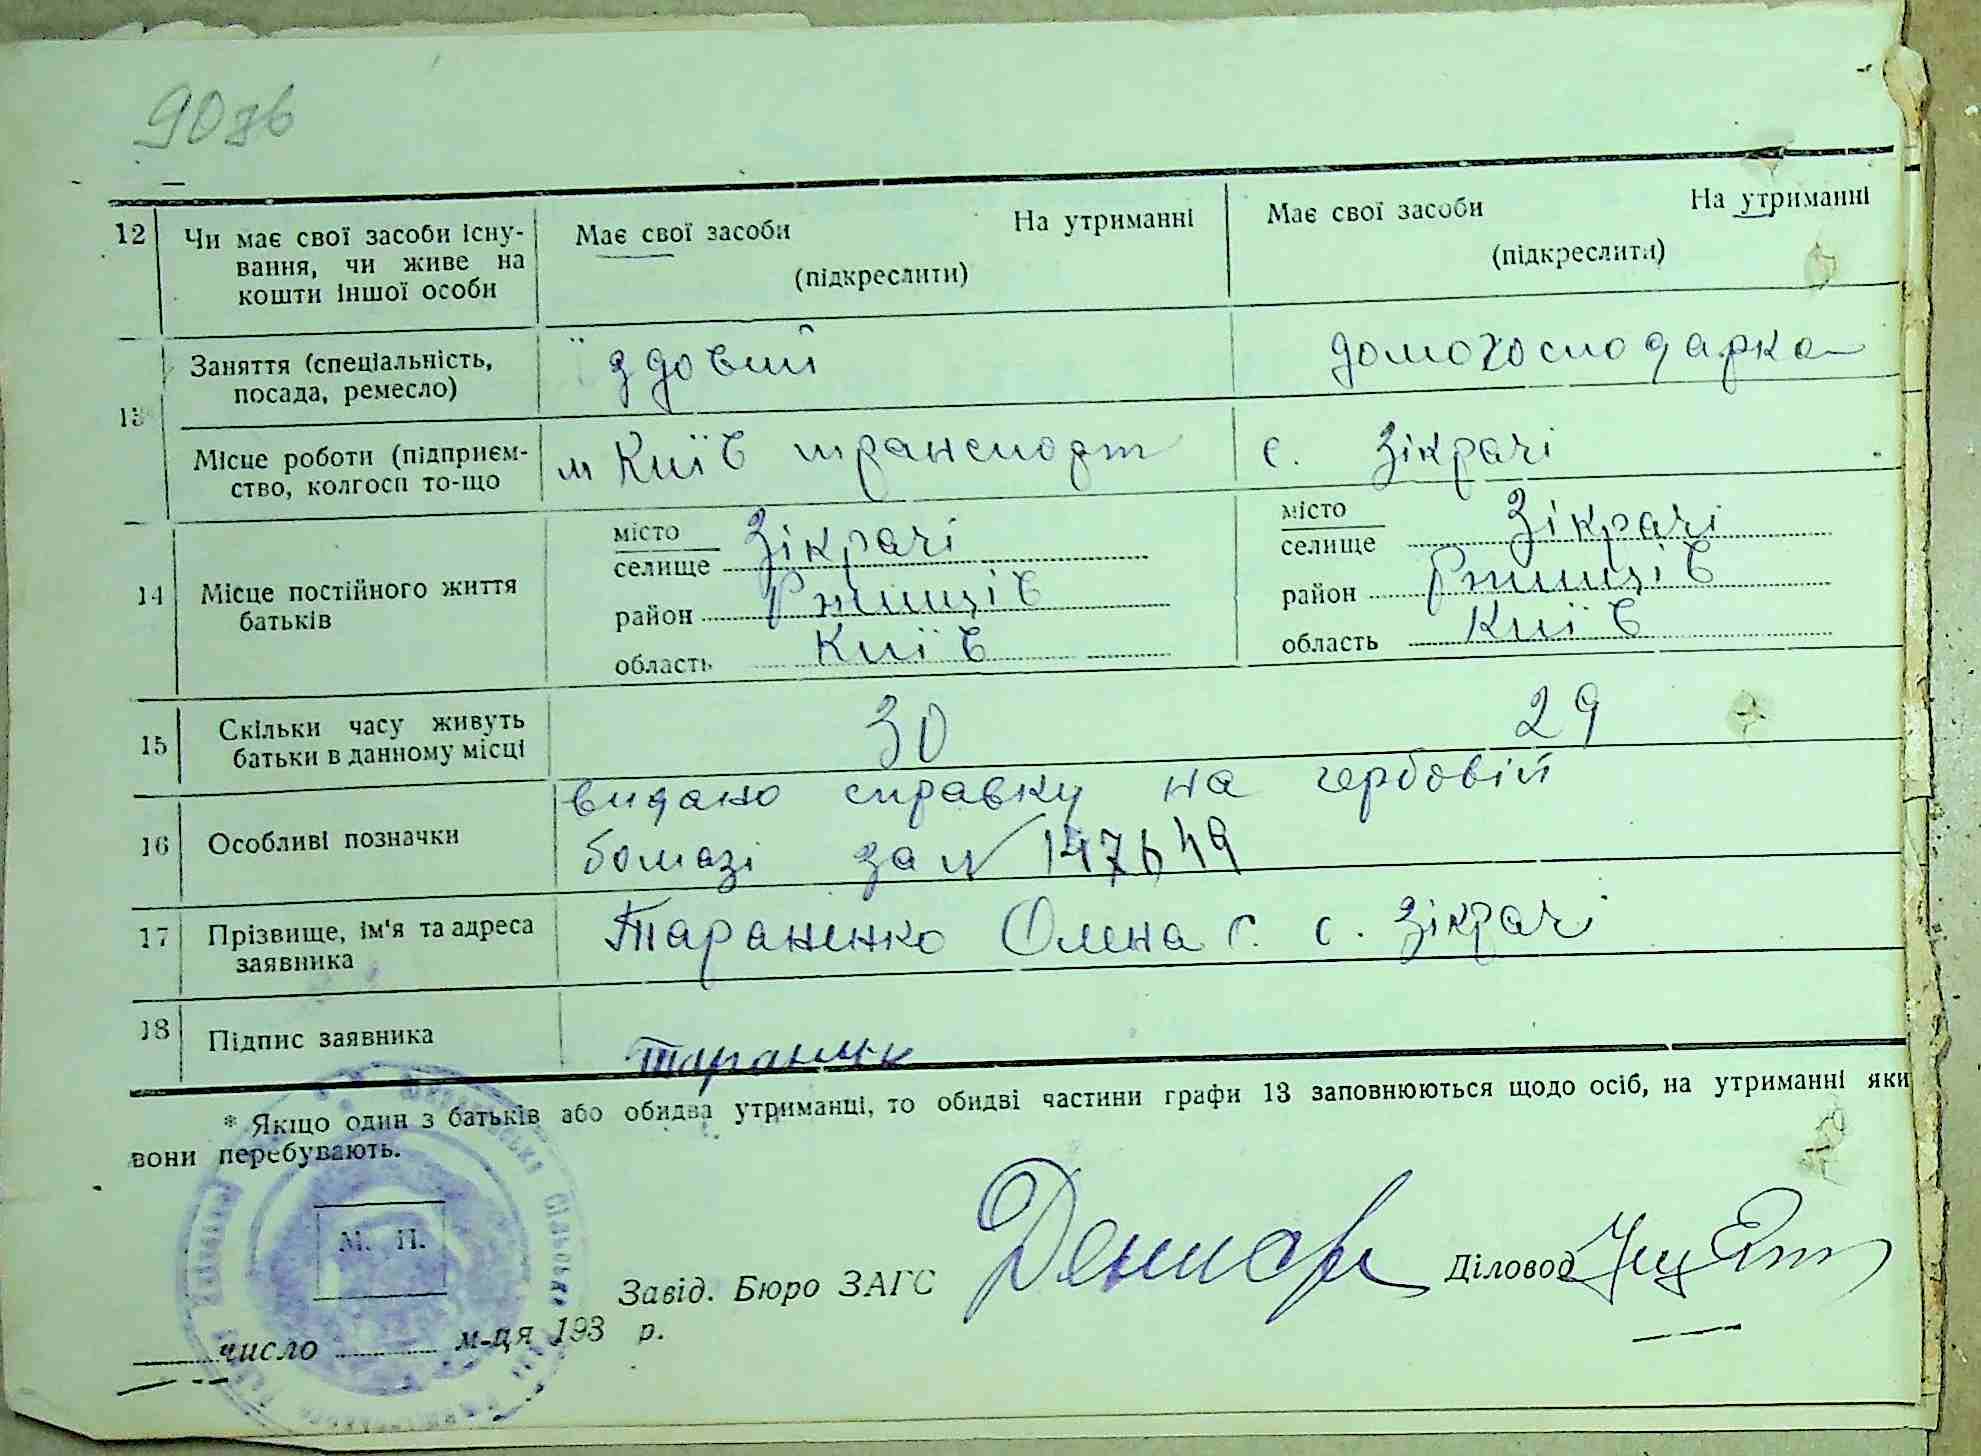 90 зв
12 Чи має свої засоби існу- Має свої засоби На утриманні Має свої засоби На утриманні
вання, чи живе на (підкреслити) (підкреслити)
кошти іншої особи
13 Заняття (спеціальність, їздовий домогосподарка
посада, ремесло)
Місце роботи (підприєм- м Київ транспорт с. Зікрачі
ство, колгосп то-що
14 Місце постійного життя батьків
місто селище Зікрачі місто селище Зікрачі
район Ржищів район Ржищів
область Київ область Київ
15 Скільки часу живуть 30 29
батьки в данному місці
16 Особливі позначки видано справку на гербовій
бомазі за №
17 Прізвище, ім'я та адреса Тараненко Олена Г. с. Зікрачі
заявника
18 Підпис заявника Тараннк
* Якщо один з батьків або обидва утриманці, то обидві частини графи 13 заповнюються щодо осіб, на утриманні яки
вони перебувають.
М. П.
Завід. Бюро ЗАГС Діловод
число м-ця 193 р.